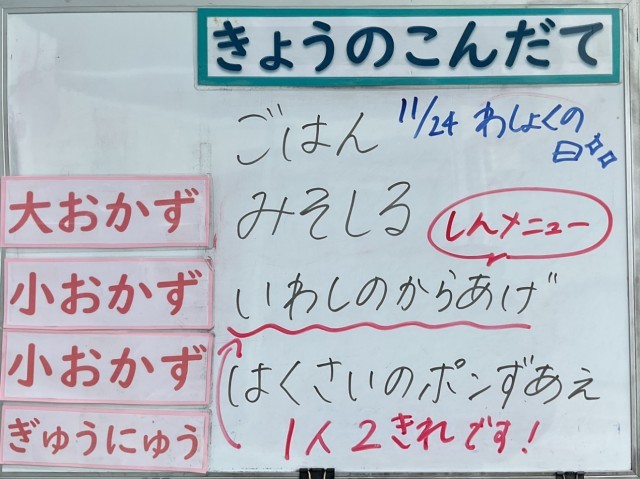 きょうのこんだて
ごはん
11/24 わしょくの
日
大おかず
みそしる
しんメニュー
小おかず
いわしのからあげ
小おかず
はくさいのポンずあえ
ぎゅうにゅう
1人2きれです!